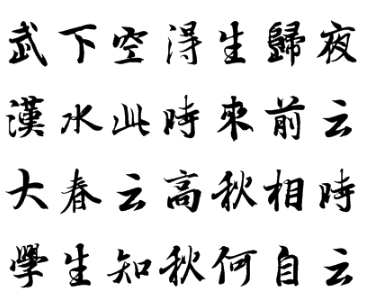 武下空得生歸夜
漢水此時來前云
大春云高秋相時
學生知秋何自云